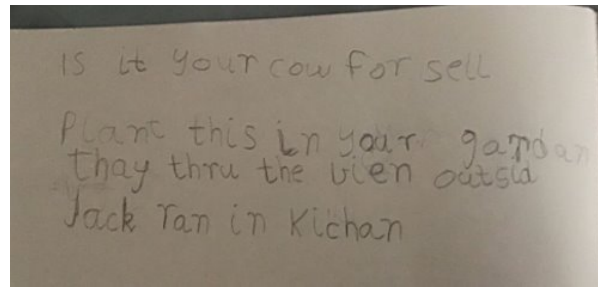 Is it your cow for sell
Plant this in your gardan
thay thru the vien outsid
Jack ran in Kichan